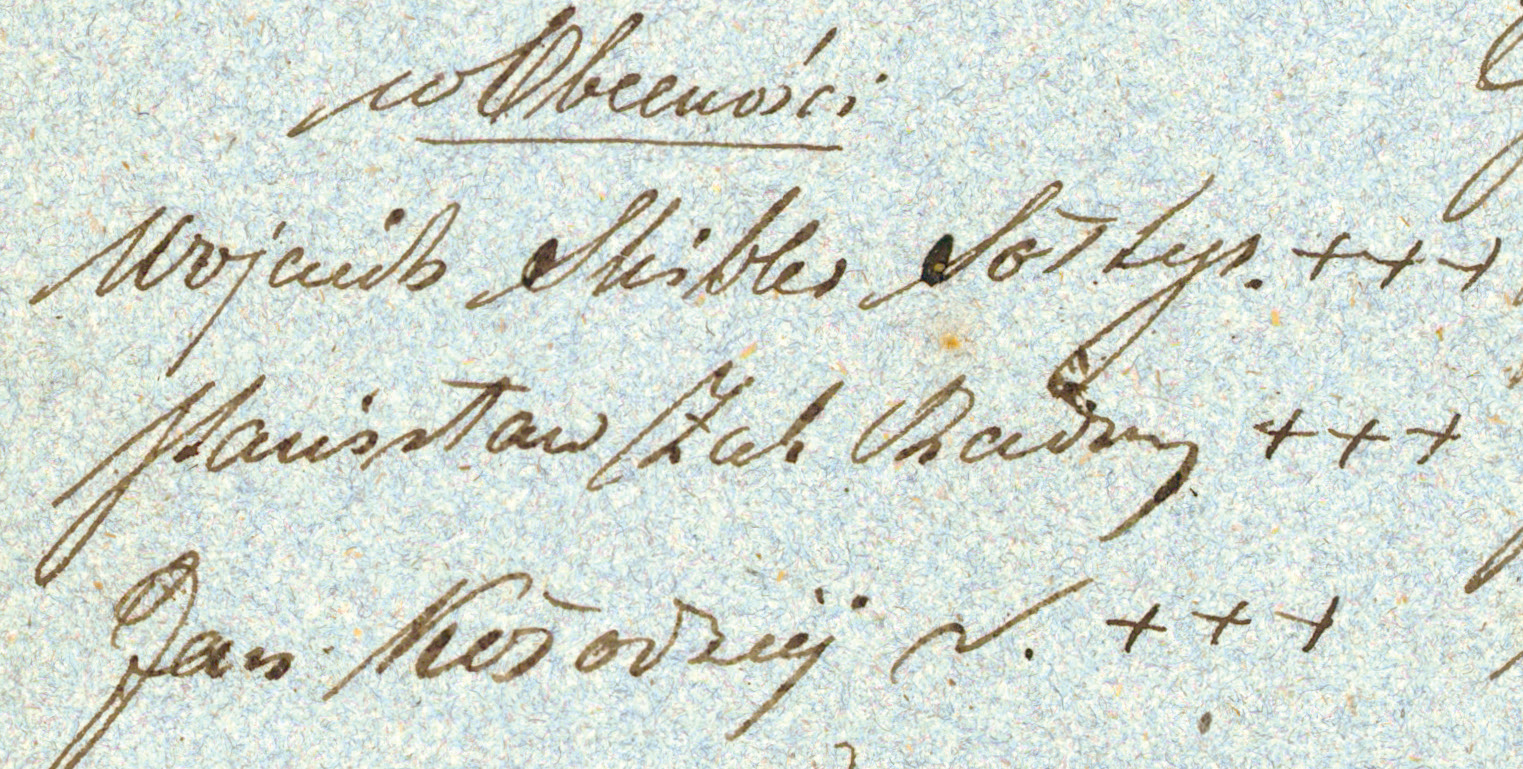 w Obecności
Wojciech Skibler Sołtys. +++
Stanisław Żak Radny +++
Jan Kołodziej r. +++